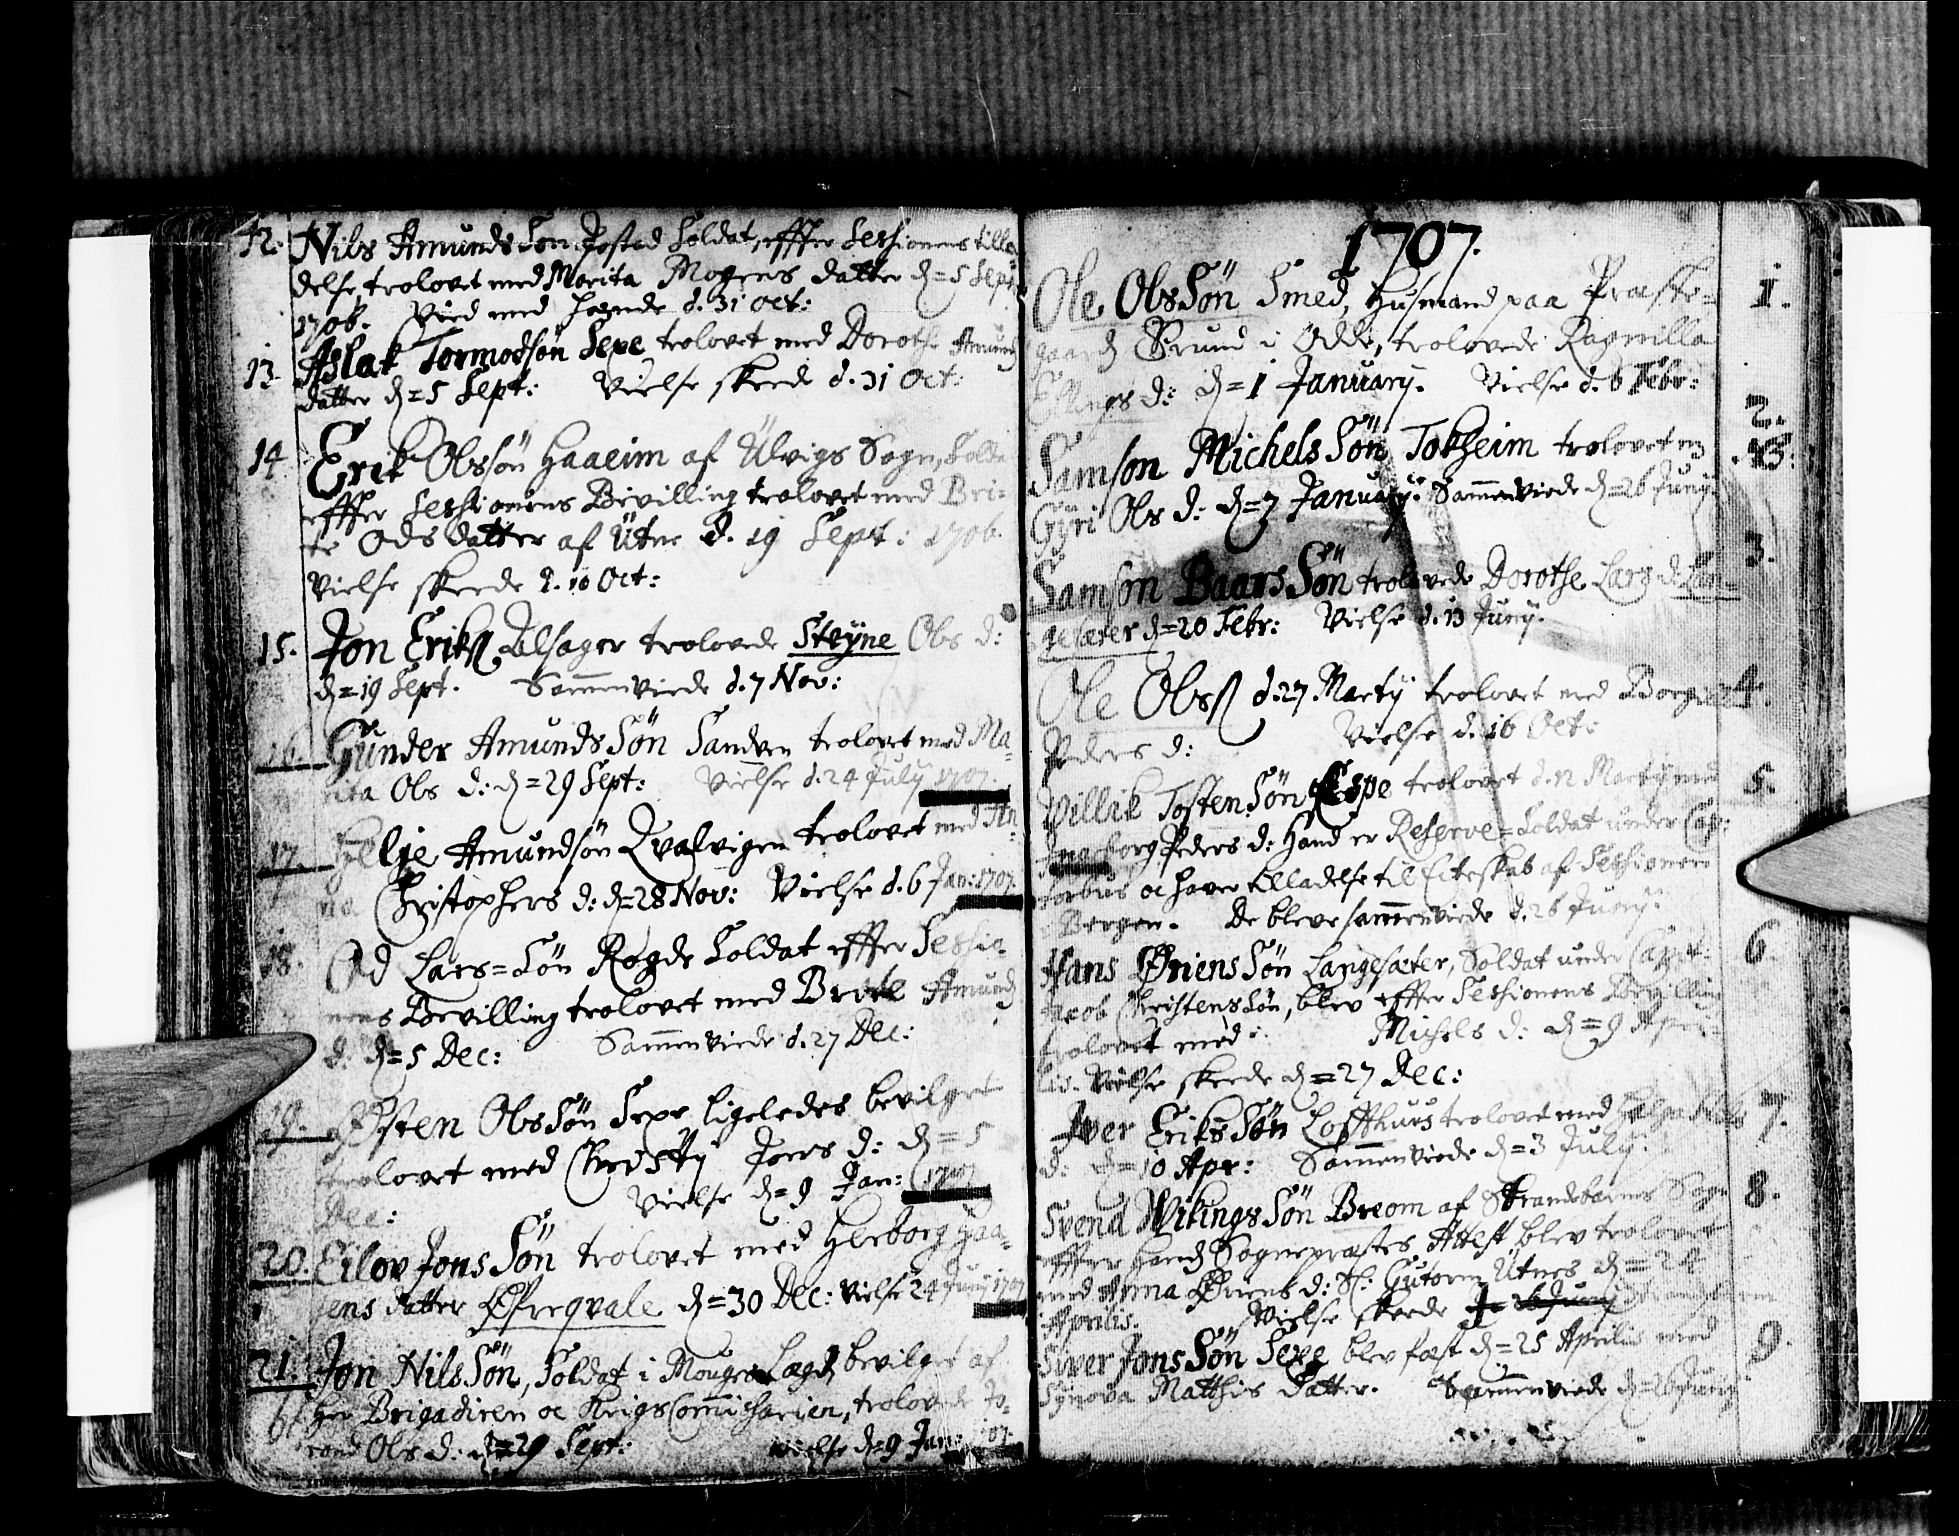 12. Nils Amunds Søn Jösted Soldat, effter Sessionens tilla-
delse trolovet med Marita Mogens datter d = 5 Sept:
1706. Vied med hende d. 31 Oct:
13 Aslak Tormodsøn Sexe trolovet med Dorothe Amunds
datter d = 5 Sept: Vielse skeede d. 31 Oct:
14 Erik Olssøn Haaeim af Ulvigs Sogn, Solda
effter Sessionens Bevilling trolovet med Bri-
te Ods datter af Utne d. 19 Sept: 1706.
Vielse skeede d. 10 Oct:
15. Jon Eriks. Alsager trolovede Steÿne Ols d:
d = 19 Sept. Sammenviede d. 7 Nov:
16. Gunder Amunds Søn Sandven trolovet med Ma-
rita Ols d: d = 29 Sept: Vielse d. 24 July 1707.
17. Helje Amundsøn Qvalvigen trolovet med An-
na Christophers d: d = 28 Nov: Vielse d. 6 Jan: 1707.
18. Od Lars = Søn Rogde Soldat effter Sessio-
nens Bevilling trolovet med Brite Amunds
d: d = 5 Dec: Sammenviede d. 27 Dec:
19. Østen Ols Søn Sexe ligeledes bevilget
trolovet med Christÿ Joers d: d = 5
Dec: Vielse d = 9 Jan: (1707
20. Eilov Jons Søn trolovet med Herborg Haa-
jens datter Øfreqvale d = 30 Dec: Vielse 24 Juny 1707
21. Jon Nils Søn, Soldat i Mouge Lægd, bevilget af
her Brigadiren oc Krigs Commissarien, trolovede Jo-
rand Ols d: d = 29 Sept: Vielse d = 9 Jan: 1707.
1707.
Ole Ols Søn Smed, Husmand paa Præste- 1.
gaard Grund i Odde, trolovede Ragnilla
d: d = 1 January. Vielse d. 6 Febr:
2.
Samson Michels Søn Tokheim trolovet m
Gÿri Ols d: d = 7 January. Sammenviede d = 26 Juny
Samson Baars Søn trolovede Dorothe Lars d. Lan- 3.
gesæter d = 20 Febr: Vielse d. 13 Juny.
Ole Ols. d. 27. Marty trolovet med Borg 4.
Peders d: Vielse d. 16 Oct:
Villik Tosten Søn Espe trolovet d. 12 Marty med 5.
Ingeborg Peders d: Hand er Reserve = Soldat under Cap:
oc haver tilladelse til Ecteskab af Sessionen
Bergen. De bleve sammenviede d. 26 Juny.
Hans Øriens Søn Langesæter, Soldat under Capit: 6.
Jacob Christens Søn, blev effter Sessionens Bevilling
trolovet med : Michels d: d = 9 Apri-
lis. Vielse skeede d = 27 Dec:
Iver Eriks Søn Loffthuus trolovet med 7.
d: d = 10 Apr: Sammenviede d = 3 July.
Svend Vikings Søn Breom af Strandebarms Sogn 8.
effter hans Sogneprestes Attest blev trolovet
med Anna Øriens d: Sl: Gutorm Utnes d = 24
Aprilis. Vielse skeede
Siver Jons Søn Sexe blev fæst d = 25 Aprilis med 9.
Synova Matthis datter. Sammenviede d = 26 Juny